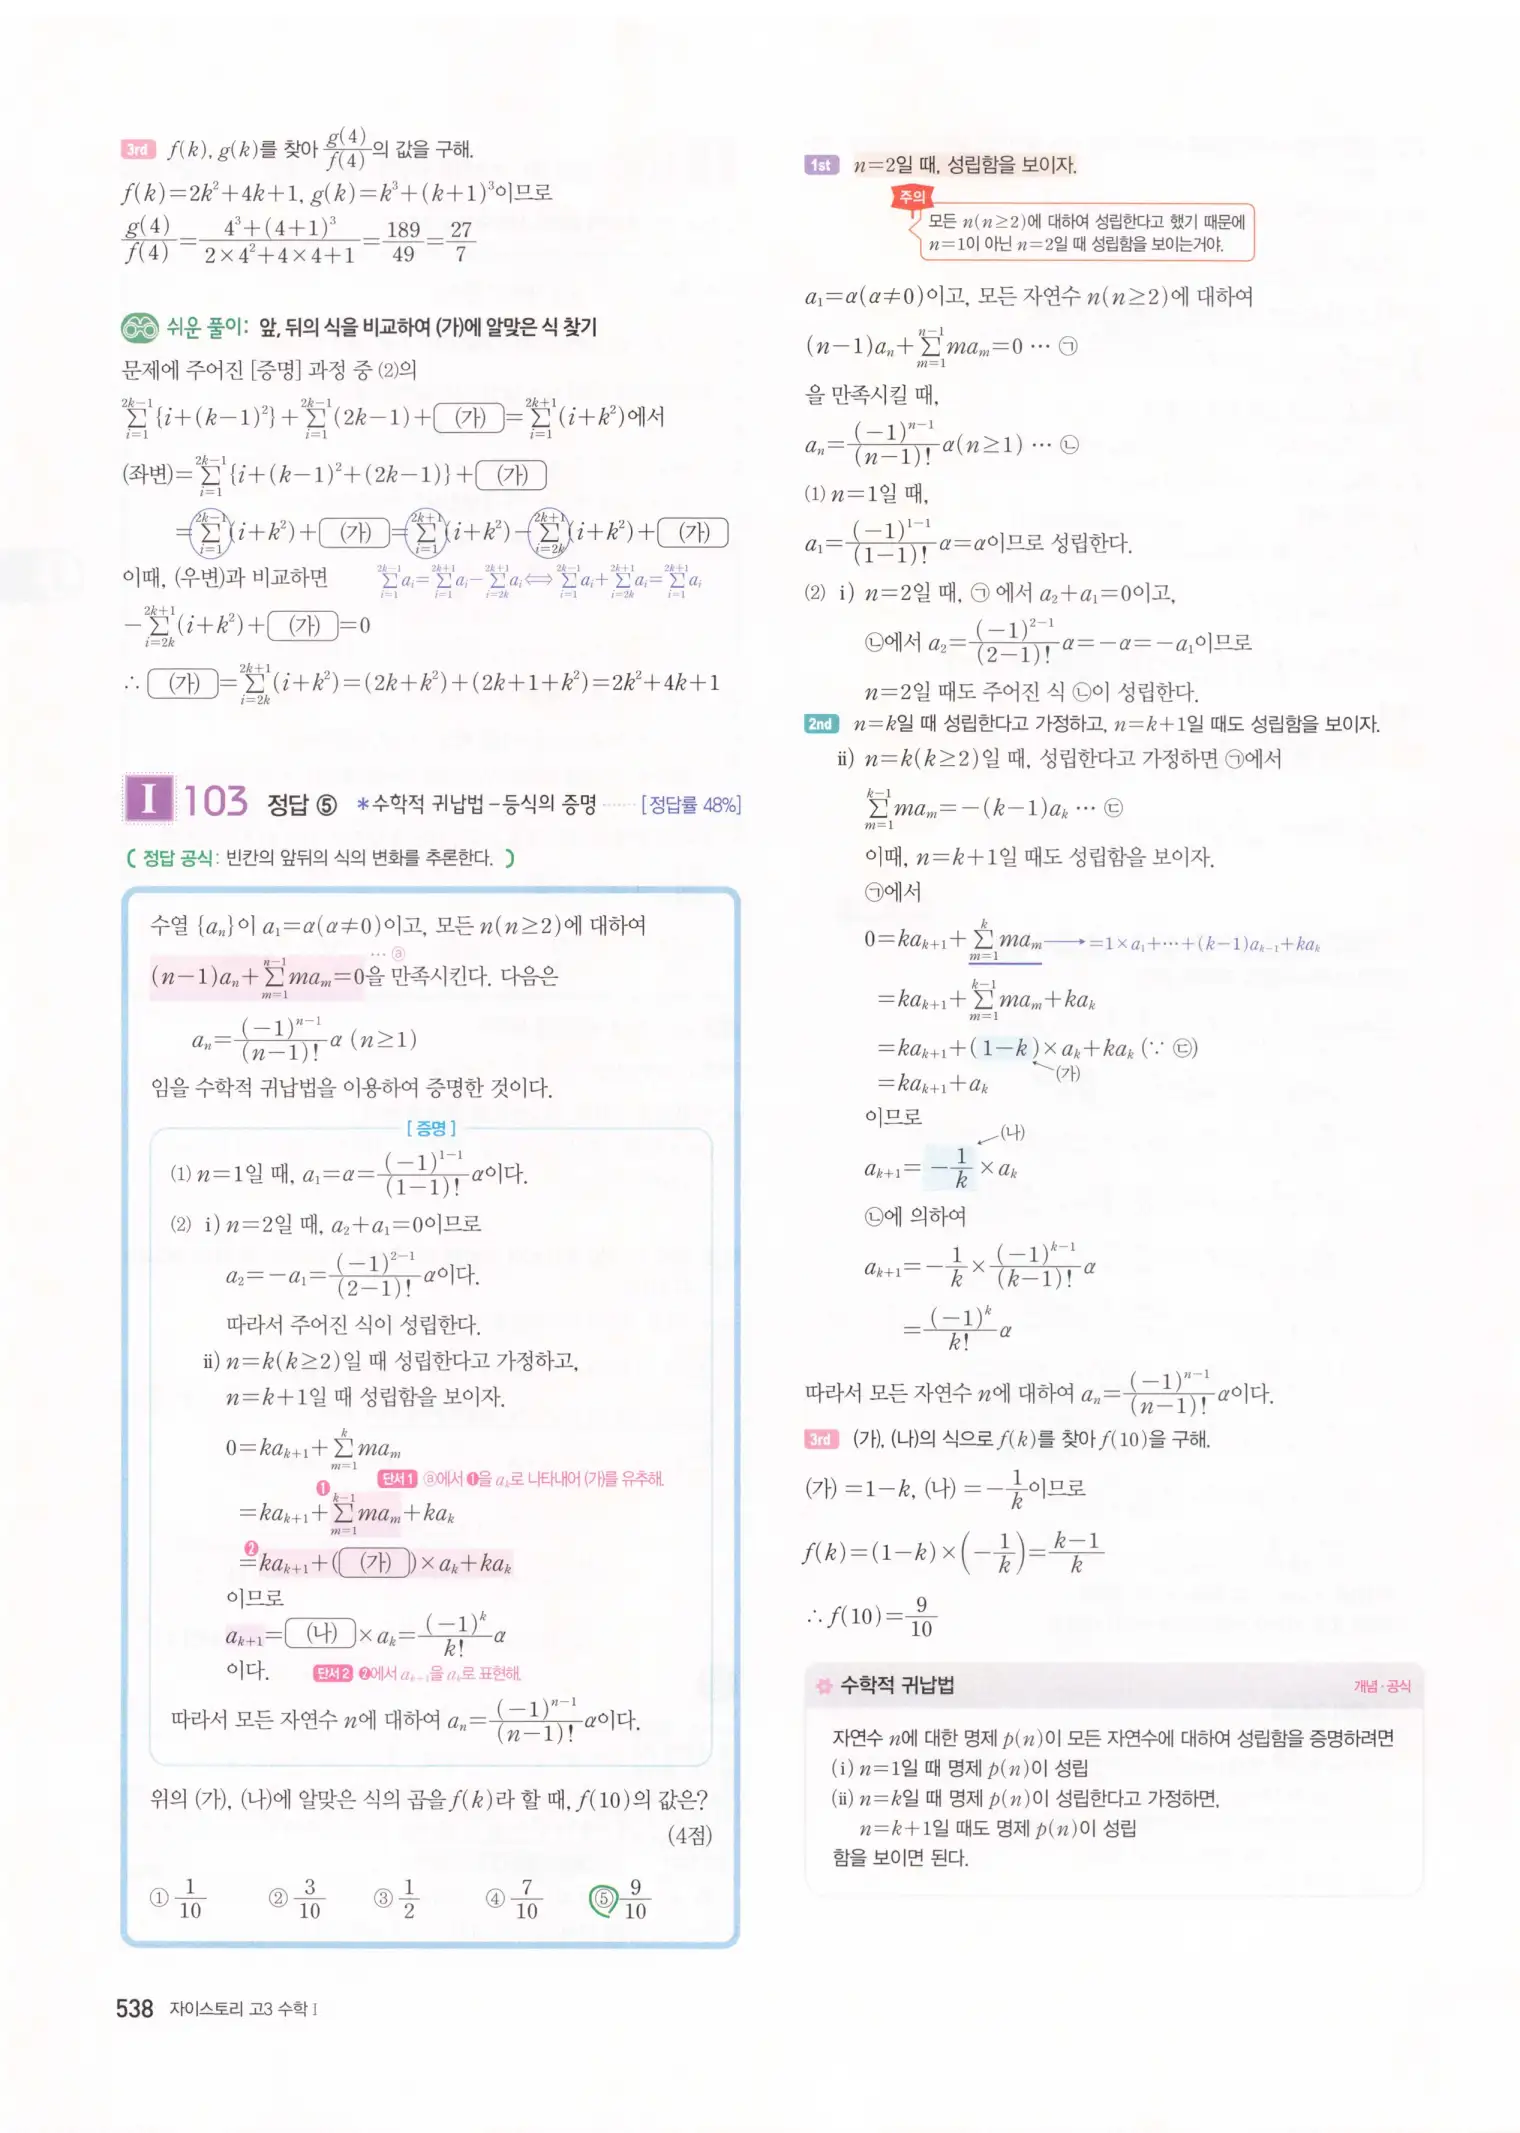 3rd f(k), g(k)를 찾아 g(4)/f(4)의 값을 구해.
f(k)=2k²+4k+1, g(k)=k³+(k+1)³이므로
g(4)/f(4)=(4³+(4+1)³)/(2×4²+4×4+1)=189/49=27/7
쉬운 풀이: 앞, 뒤의 식을 비교하여 (가)에 알맞은 식 찾기
문제에 주어진 [증명] 과정 중 (2)의
∑_{i=1}^{2k-1}{i+(k-1)²}+∑_{i=1}^{2k-1}(2k-1)+(가)=∑_{i=1}^{2k+1}(i+k²)에서
(좌변)=∑_{i=1}^{2k-1}{i+(k-1)²+(2k-1)}+(가)
=∑_{i=1}^{2k-1}(i+k²)+(가)=∑_{i=1}^{2k+1}(i+k²)-∑_{i=2k}^{2k+1}(i+k²)+(가)
이때, (우변)과 비교하면 ∑_{i=1}^{2k-1}a_i=∑_{i=1}^{2k+1}a_i-∑_{i=2k}^{2k+1}a_i⟺∑_{i=1}^{2k-1}a_i+∑_{i=2k}^{2k+1}a_i=∑_{i=1}^{2k+1}a_i
-∑_{i=2k}^{2k+1}(i+k²)+(가)=0
∴ (가)=∑_{i=2k}^{2k+1}(i+k²)=(2k+k²)+(2k+1+k²)=2k²+4k+1
I 103 정답 ⑤ *수학적 귀납법-등식의 증명 ······ [정답률 48%]
( 정답 공식: 빈칸의 앞뒤의 식의 변화를 추론한다. )
수열 {a_n}이 a₁=α(α≠0)이고, 모든 n(n≥2)에 대하여
(n-1)a_n+∑_{m=1}^{n-1}ma_m=0 ··· ⓐ을 만족시킨다. 다음은
a_n=((-1)^{n-1}/(n-1)!)α (n≥1)
임을 수학적 귀납법을 이용하여 증명한 것이다.
[증명]
(1) n=1일 때, a₁=α=((-1)^{1-1}/(1-1)!)α이다.
(2) i) n=2일 때, a₂+a₁=0이므로
a₂=-a₁=((-1)^{2-1}/(2-1)!)α이다.
따라서 주어진 식이 성립한다.
ii) n=k(k≥2)일 때 성립한다고 가정하고,
n=k+1일 때 성립함을 보이자.
0=ka_{k+1}+∑_{m=1}^{k}ma_m
단서1 ⓐ에서 ❶을 a_k로 나타내어 (가)를 유추해.
=ka_{k+1}+❶∑_{m=1}^{k-1}ma_m+ka_k
❷=ka_{k+1}+((가))×a_k+ka_k
이므로
a_{k+1}=(나)×a_k=((-1)^k/k!)α
이다. 단서2 ❷에서 a_{k+1}을 a_k로 표현해.
따라서 모든 자연수 n에 대하여 a_n=((-1)^{n-1}/(n-1)!)α이다.
위의 (가), (나)에 알맞은 식의 곱을 f(k)라 할 때, f(10)의 값은?
(4점)
① 1/10 ② 3/10 ③ 1/2 ④ 7/10 ⑤ 9/10
538 자이스토리 고3 수학 I
1st n=2일 때, 성립함을 보이자.
주의
모든 n(n≥2)에 대하여 성립한다고 했기 때문에
n=1이 아닌 n=2일 때 성립함을 보이는거야.
a₁=α(α≠0)이고, 모든 자연수 n(n≥2)에 대하여
(n-1)a_n+∑_{m=1}^{n-1}ma_m=0 ··· ㉠
을 만족시킬 때,
a_n=((-1)^{n-1}/(n-1)!)α(n≥1) ··· ㉡
(1) n=1일 때,
a₁=((-1)^{1-1}/(1-1)!)α=α이므로 성립한다.
(2) i) n=2일 때, ㉠에서 a₂+a₁=0이고,
㉡에서 a₂=((-1)^{2-1}/(2-1)!)α=-α=-a₁이므로
n=2일 때도 주어진 식 ㉡이 성립한다.
2nd n=k일 때 성립한다고 가정하고, n=k+1일 때도 성립함을 보이자.
ii) n=k(k≥2)일 때, 성립한다고 가정하면 ㉠에서
∑_{m=1}^{k-1}ma_m=-(k-1)a_k ··· ㉢
이때, n=k+1일 때도 성립함을 보이자.
㉠에서
0=ka_{k+1}+∑_{m=1}^{k}ma_m → =1×a₁+···+(k-1)a_{k-1}+ka_k
=ka_{k+1}+∑_{m=1}^{k-1}ma_m+ka_k
=ka_{k+1}+(1-k)×a_k+ka_k (∵ ㉢)
=ka_{k+1}+a_k (가)
이므로
(나)
a_{k+1}=-1/k×a_k
㉡에 의하여
a_{k+1}=-1/k×((-1)^{k-1}/(k-1)!)α
=((-1)^k/k!)α
따라서 모든 자연수 n에 대하여 a_n=((-1)^{n-1}/(n-1)!)α이다.
3rd (가), (나)의 식으로 f(k)를 찾아 f(10)을 구해.
(가)=1-k, (나)=-1/k이므로
f(k)=(1-k)×(-1/k)=(k-1)/k
∴ f(10)=9/10
수학적 귀납법 개념·공식
자연수 n에 대한 명제 p(n)이 모든 자연수에 대하여 성립함을 증명하려면
(i) n=1일 때 명제 p(n)이 성립
(ii) n=k일 때 명제 p(n)이 성립한다고 가정하면,
n=k+1일 때도 명제 p(n)이 성립
함을 보이면 된다.